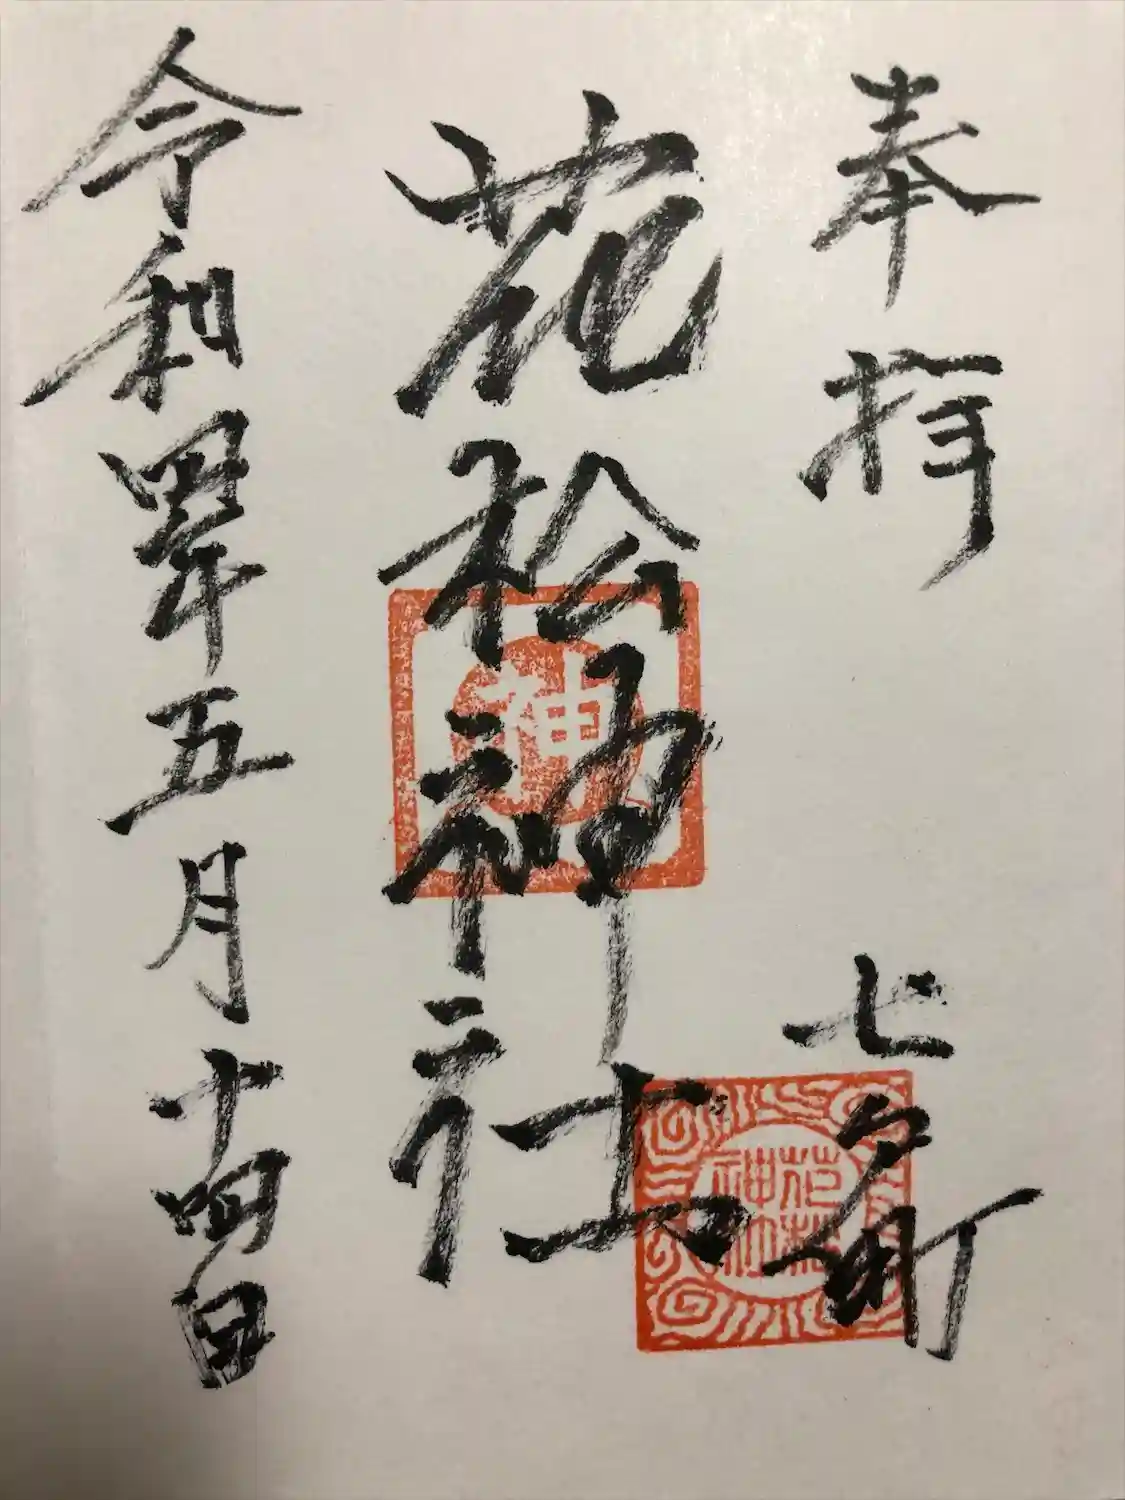 奉拝
七夕町
花松神社
令和四年五月十四日
神
花松
神社